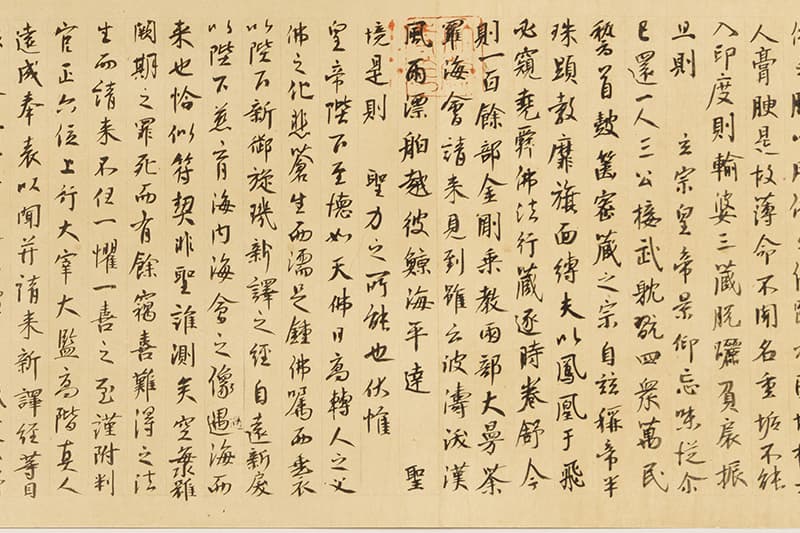 人膏腴是故薄命不聞名重垢不能
入印度則輸婆三藏脫躧負扆振
旦則　玄宗皇帝景仰忘味從尓
已還一人三公接武耽翫四衆萬民
稽首鼓篋密藏之宗自玆稱帝半
珠顕教靡旗面縛夫以鳳凰于飛
必窺堯舜佛法行藏逐時卷舒今
則一百餘部金剛乘教兩部大曼荼
羅海會請來見到雖云波濤沃漢
風雨漂舶越彼鯨海平達　聖
境是則　聖力之所能也伏惟
皇帝陛下至德如天佛日高轉人之父
佛之化悲蒼生而濡足鍾佛囑而垂衣
以陛下新御旋璣新譯之經自遠新戾
以陛下慈育海内海會之像過海而
来也恰似符契非聖誰測矣空海雖
闕期之罪死而有餘竊喜難得之法
生而請来不任一懼一喜之至謹附判
官正六位上行大宰大監高階真人
遠成奉表以聞并請来新譯經等目